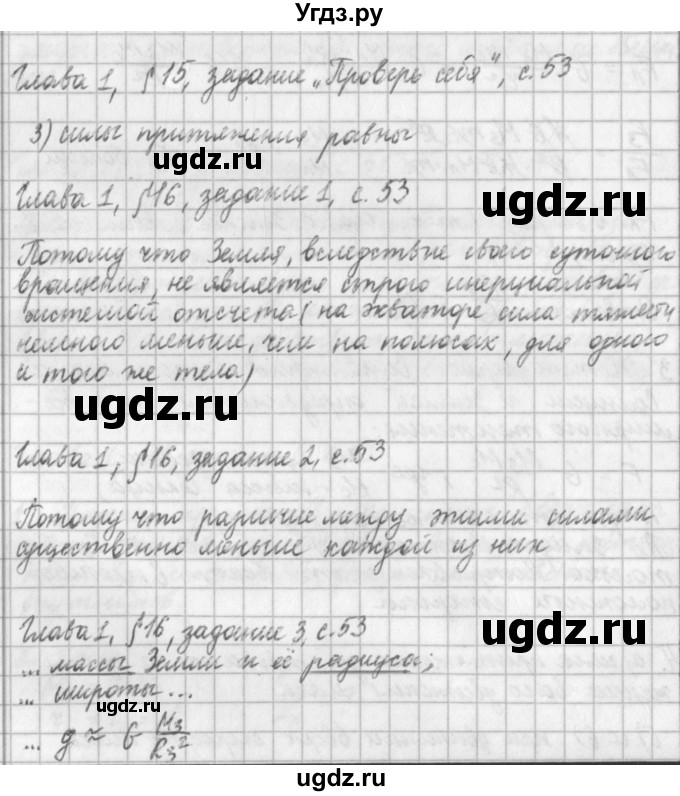 Угдз.ру
Глава 1, §15, задание „Проверь себя", с. 53
3) силы притяжения равны
ugdz.ru ugdz.ru
Глава 1, §16, задание 1, с. 53
Потому что Земля, вследствие своего суточного
вращения, не является строго инерциальной
системой отсчета (на экваторе сила тяжести
немного меньше, чем на полюсах, для одного
и того же тела)
ugdz.ru ugdz.ru
Глава 1, §16, задание 2, с. 53
Потому что различие между этими силами
существенно меньше каждой из них
Глава 1, §16, задание 3, с. 53
ugdz.ru
... массы Земли и её радиуса;
... широты ...
ugdz.ru
... g ≈ G Mз/Rз²
ugdz.ru